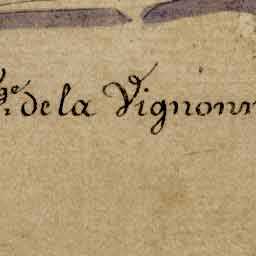 de la Vignonn